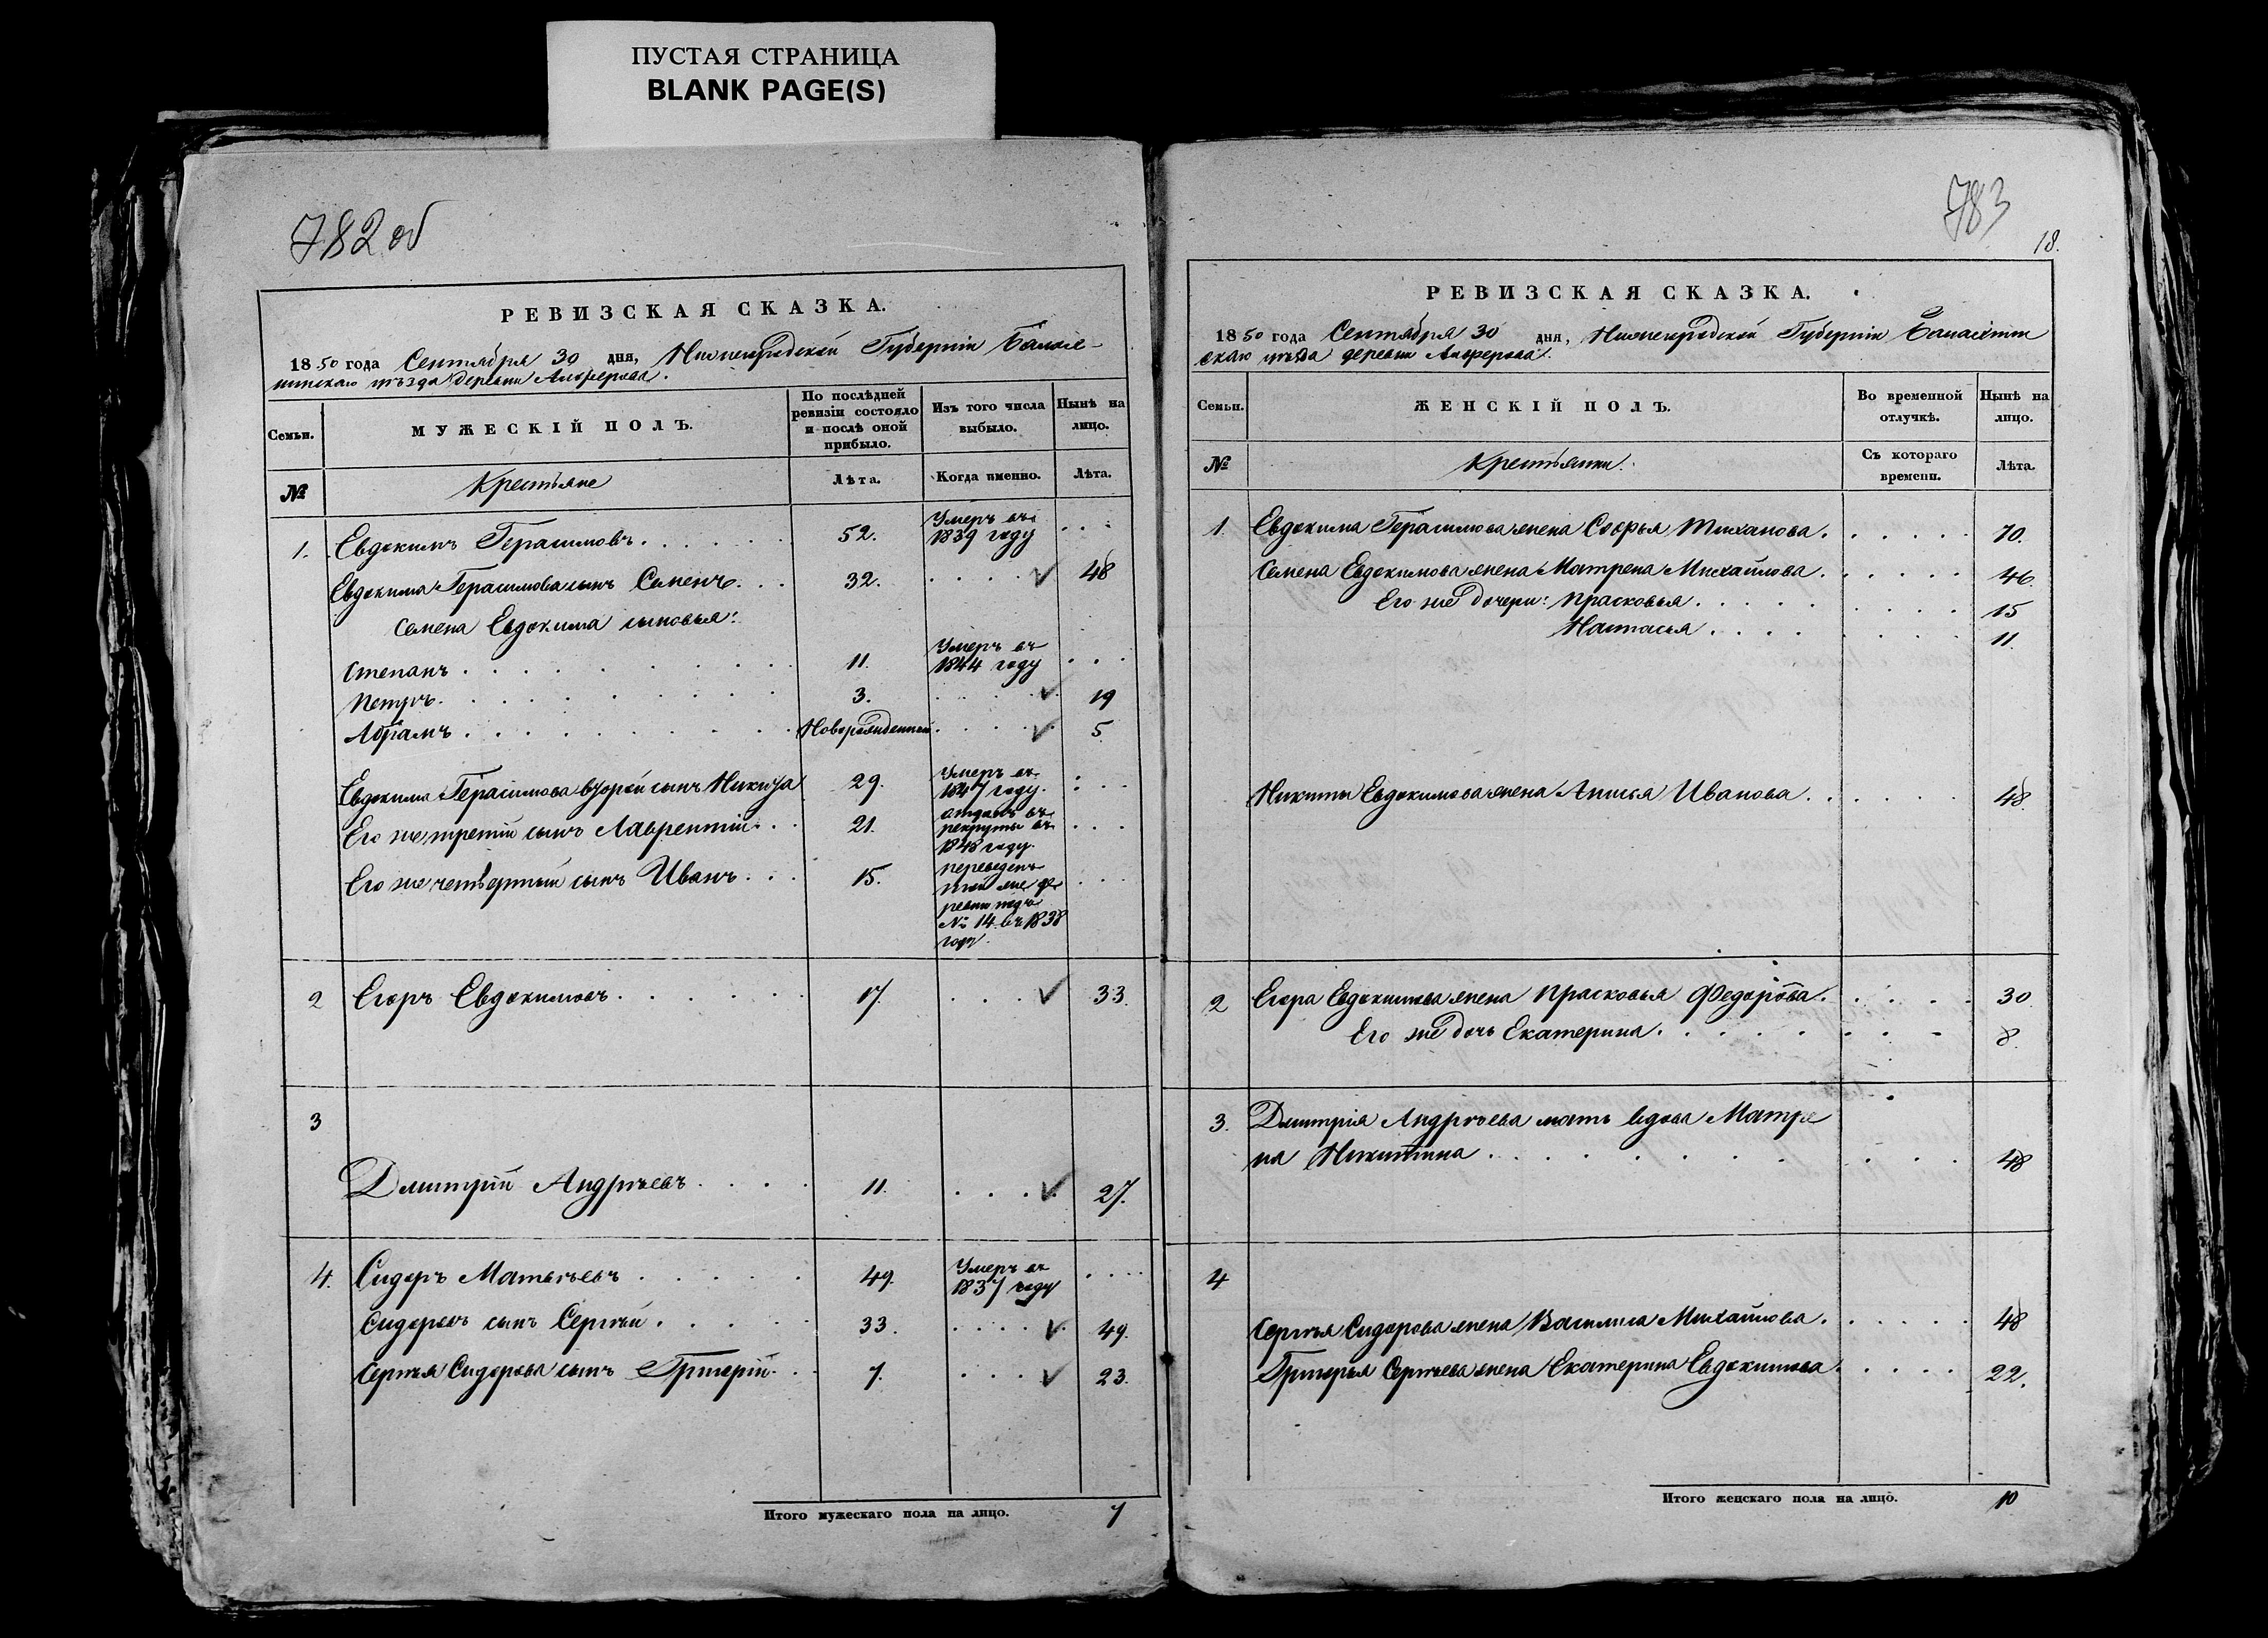 ПУСТАЯ СТРАНИЦА
BLANK PAGE(S)
782 об
РЕВИЗСКАЯ СКАЗКА.
1850 года Сентября 30 дня, Нижегородской Губерніи Балах-
нинскаго уѣзда деревни Алферова.
Семьи. МУЖЕСКІЙ ПОЛЪ. По послѣдней ревизіи состояло и послѣ оной прибыло. Изъ того числа выбыло. Нынѣ на лицо.
№ Крестьяне Лѣта. Когда именно. Лѣта.
1. Евдокимъ Герасимовъ 52. Умеръ въ 1839 году
Евдокима Герасимова сынъ Семенъ 32. 48
Семена Евдокима сыновья:
Степанъ 11. Умеръ въ 1844 году
Петръ 3. 19
Абрамъ Новорожденный 5
Евдокима Герасимова второй сынъ Никита 29. Умеръ въ 1847 году.
Его же третій сынъ Лаврентій 21. отданъ въ рекруты въ 1848 году.
Его же четвертый сынъ Иванъ 15. переведенъ той же деревни подъ № 14 въ 1838 году.
2 Егоръ Евдокимовъ 17. 33.
3
Дмитрій Андреевъ 11. 27.
4. Сидоръ Матвѣевъ 49. Умеръ въ 1837 году
Сидоровъ сынъ Сергѣй 33. 49.
Сергѣя Сидорова сынъ Григорій 7. 23.
Итого мужескаго пола на лицо. 7
783
18.
РЕВИЗСКАЯ СКАЗКА.
1850 года Сентября 30 дня, Нижегородской Губерніи Балахнин
скаго уѣзда деревни Алферова.
Семьи. ЖЕНСКІЙ ПОЛЪ. Во временной отлучкѣ. Нынѣ на лицо.
№ Крестьянки. Съ котораго времени. Лѣта.
1. Евдокима Герасимова жена Софья Тиханова. 70.
Семена Евдокимова жена Матрена Михайлова. 46.
Его же дочери: Прасковья 15
Настасья 11.
Никиты Евдокимова жена Анисья Иванова. 48.
2 Егора Евдокимова жена Прасковья Федорова. 30
Его же дочь Екатерина. 8.
3. Дмитрія Андреева мать вдова Матре
на Никитина 48
4
Сергѣя Сидорова жена Василиса Михайлова. 48
Григорья Сергѣева жена Екатерина Евдокимова. 22.
Итого женскаго пола на лицо. 10